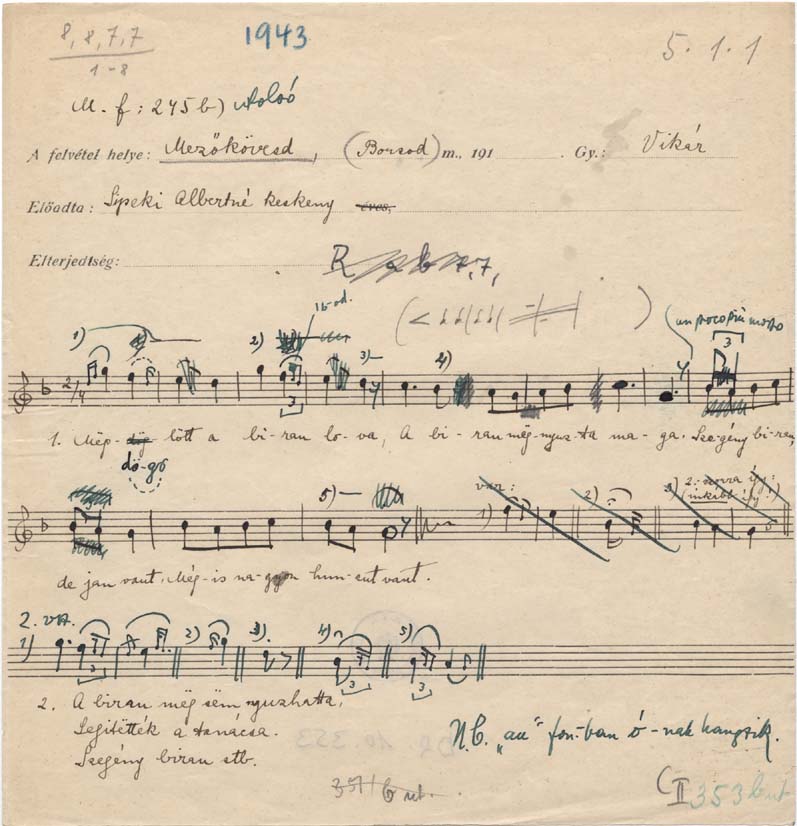 8, 8, 7, 7
1-8
1943
5. 1. 1
M. f: 245 b)
A felvétel helye: Mezőkövesd, (Borsod) m., 191 . Gy.: Vikár
Előadta: Sipeki Albertné keskeny éves,
Elterjedtség: R
16-od.
un poco più mosso
1) 2) 3) 4)
2/4
3 3
1. Még- lött a bi-rau lo-va, A bi-rau még-nyuz-ta ma-ga. Szegény bi-rau,
dö-gö
var: 5) 1) 2) 3) 2. sorra így:
(inkább így)
de jau vaut, Még-is na-gyon hun-cut vaut.
2. vsz.
1) 2) 3) 4) 5)
3 3 3
2. A birau még sëm nyuzhatta,
Segitëtték a tanácsa.
Szegény birau stb.
N.B. "au" fon-ban ó-nak hangzik.
C II 353 b